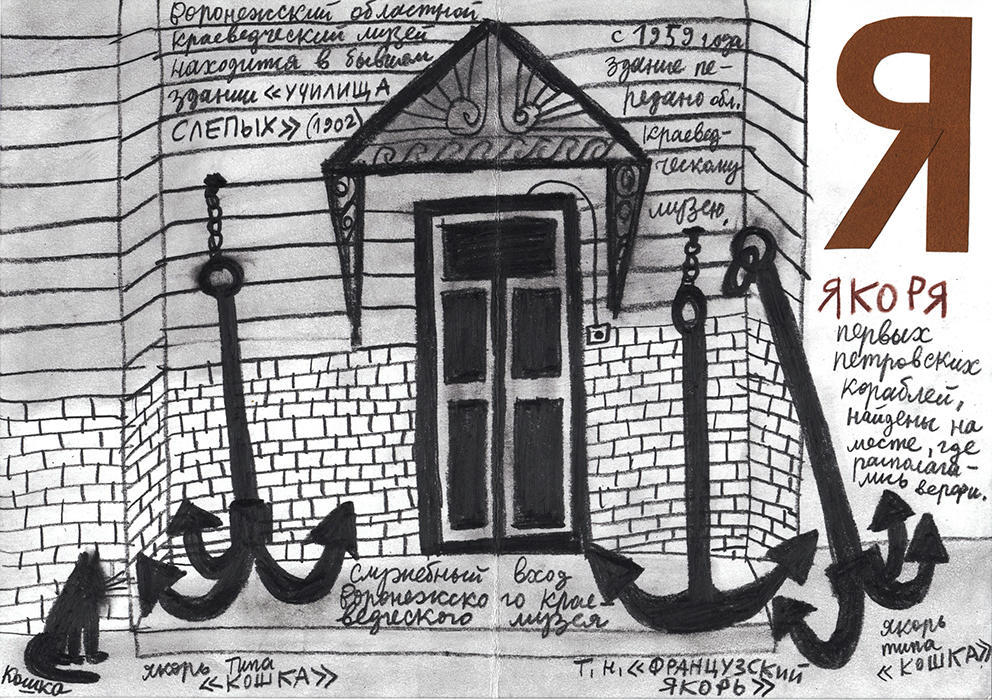 Воронежский областной
краеведческий музей
находится в бывшем
здании «УЧИЛИЩА
СЛЕПЫХ» (1902)
с 1959 года
здание пе-
редано обл.
краевед-
ческому
музею.
Я
ЯКОРЯ
первых
петровских
кораблей,
найдены на
месте, где
располага-
лись верфи.
Служебный вход
Воронежского крае-
ведческого музея
Кошка
якорь типа
«КОШКА»
Т.н. «ФРАНЦУЗСКИЙ
ЯКОРЬ»
якорь
типа
«КОШКА»